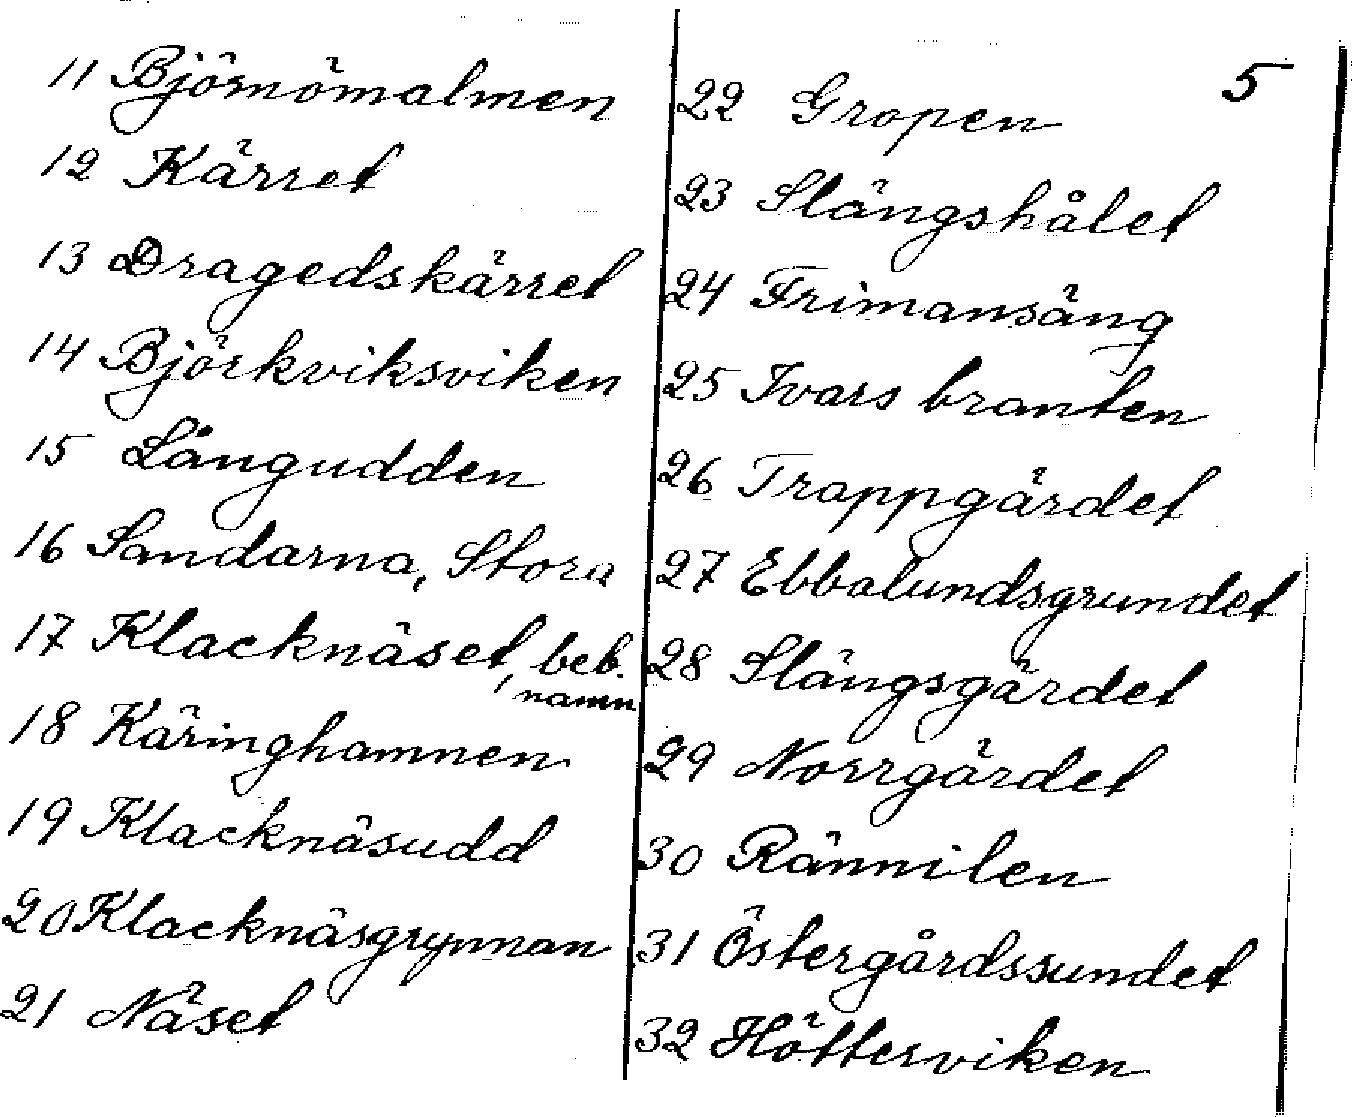 11 Björnömalmen
12 Kärret
13 Dragedskärret
14 Björkviksviken
15 Långudden
16 Sandarna, Stora
17 Klacknäset, beb.
namn
18 Käringhamnen
19 Klacknäsudd
20 Klacknäsgrynnan
21 Näset
5
22 Gropen
23 Slängshålet
24 Frimansäng
25 Ivars branten
26 Trappgärdet
27 Ebbalundsgrundet
28 Slängsgärdet
29 Norrgärdet
30 Rännilen
31 Östergårdssundet
32 Höttersviken